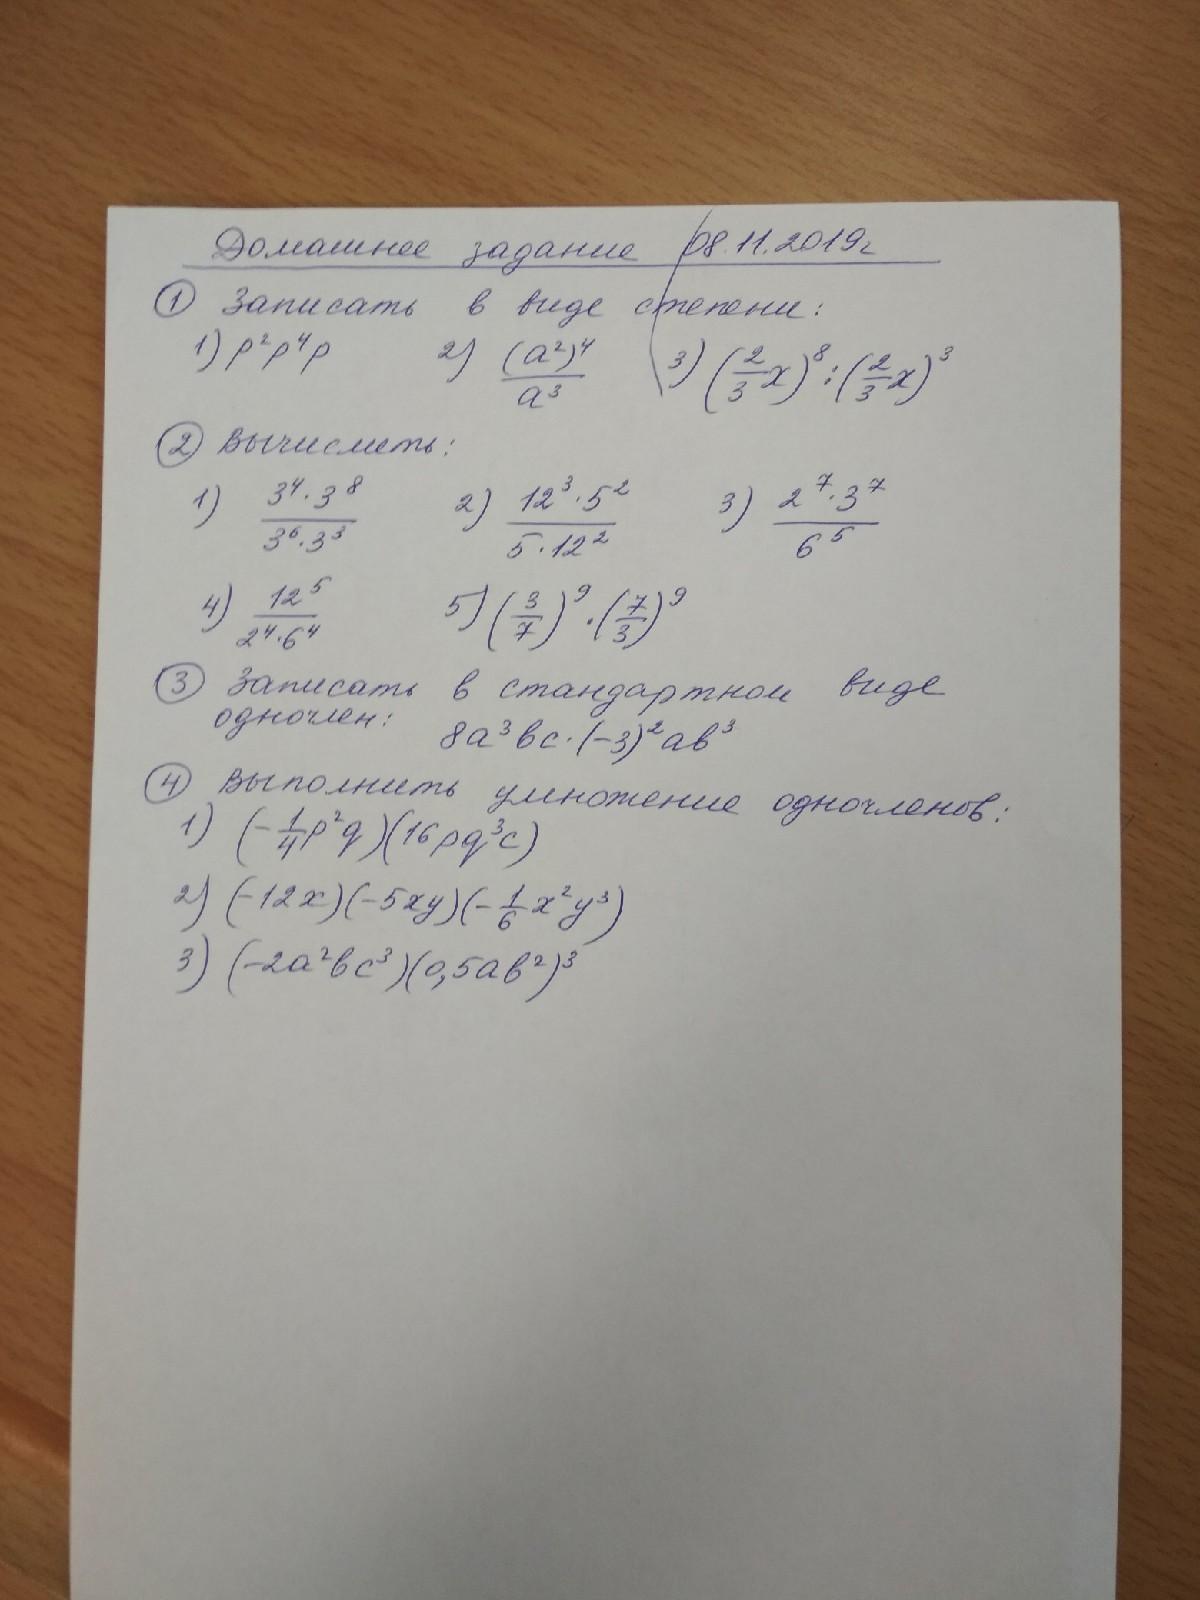 Домашнее задание 08.11.2019г
① Записать в виде степени:
1) p²p⁴p 2) (a²)⁴/a³ 3) (2/3 x)⁸ : (2/3 x)³
② Вычислить:
1) 3⁴·3⁸/3⁶·3³ 2) 12³·5²/5·12² 3) 2⁷·3⁷/6⁵
4) 12⁵/2⁴·6⁴ 5) (3/7)⁹·(7/3)⁹
③ Записать в стандартном виде
одночлен:
8a³bc·(-3)²ab³
④ Выполнить умножение одночленов:
1) (-1/4 p²q)(16pq³c)
2) (-12x)(-5xy)(-1/6 x²y³)
3) (-2a²bc³)(0,5ab²)³